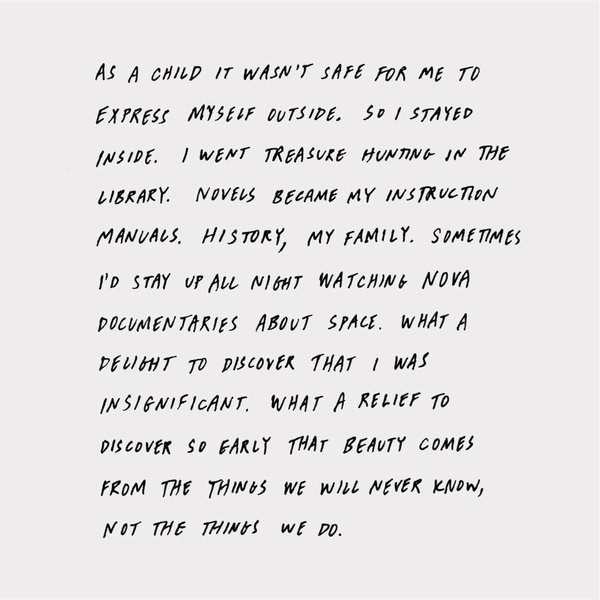 AS A CHILD IT WASN'T SAFE FOR ME TO
EXPRESS MYSELF OUTSIDE. SO I STAYED
INSIDE. I WENT TREASURE HUNTING IN THE
LIBRARY. NOVELS BECAME MY INSTRUCTION
MANUALS. HISTORY, MY FAMILY. SOMETIMES
I'D STAY UP ALL NIGHT WATCHING NOVA
DOCUMENTARIES ABOUT SPACE. WHAT A
DELIGHT TO DISCOVER THAT I WAS
INSIGNIFICANT. WHAT A RELIEF TO
DISCOVER SO EARLY THAT BEAUTY COMES
FROM THE THINGS WE WILL NEVER KNOW,
NOT THE THINGS WE DO.